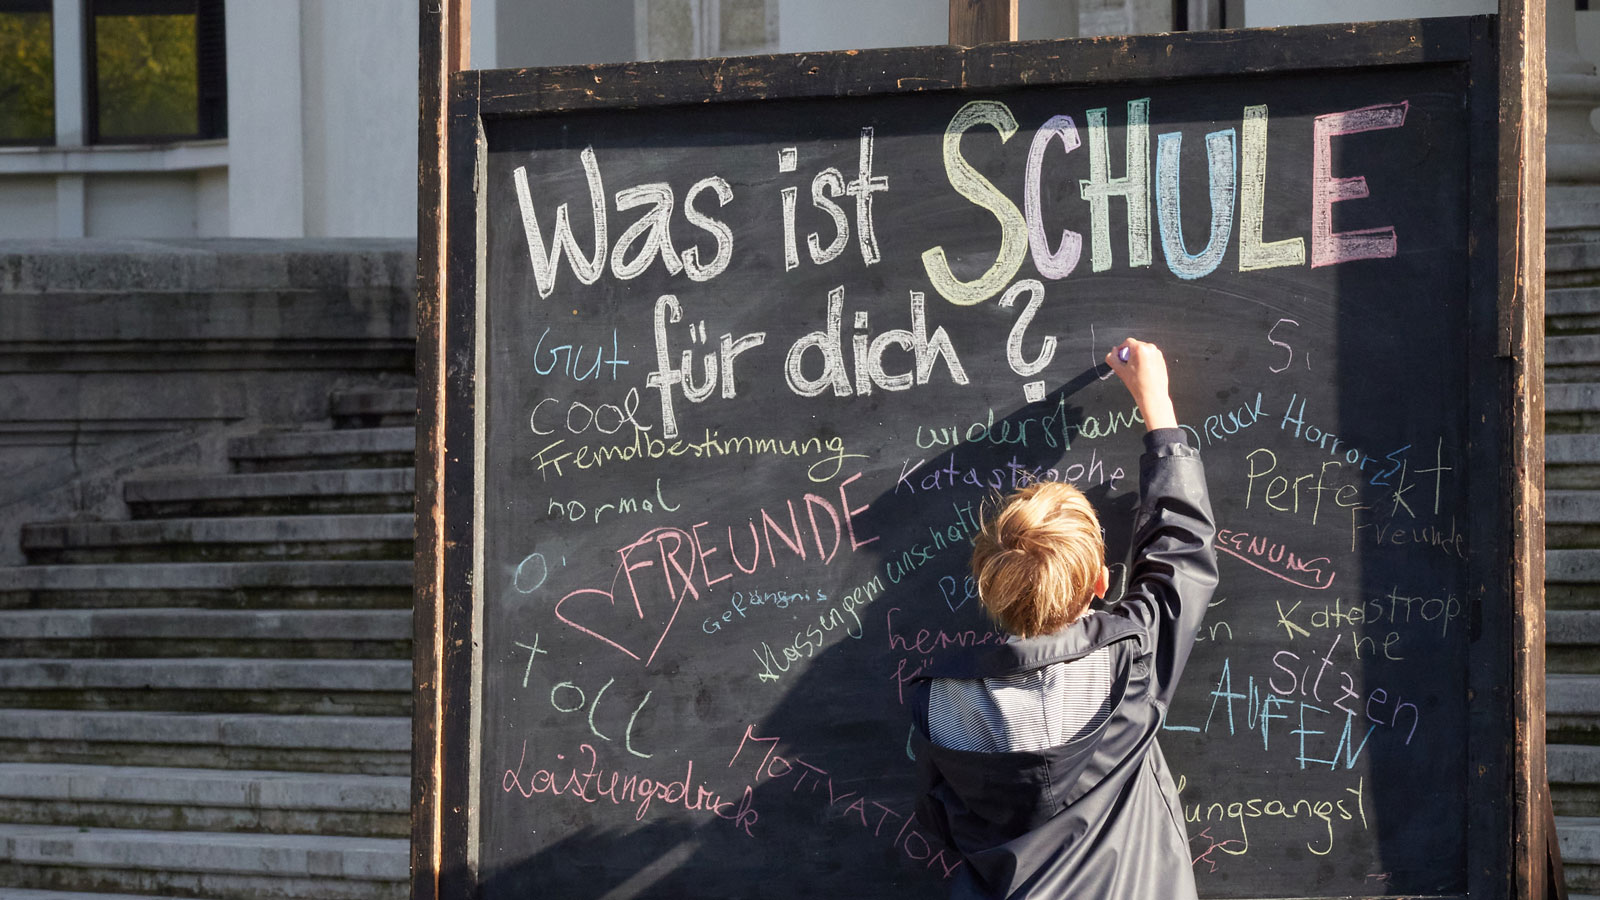 Was ist SCHULE
für dich?
Gut
Cool
Fremdbestimmung
normal
FREUNDE
Gefängnis
Klassengemeinschaft
toll
Leistungsdruck
MOTIVATION
widerstand
Katastrophe
DRUCK Horror
Perfekt
Freunde
Katastrop
he
Sitzen
LAUFEN